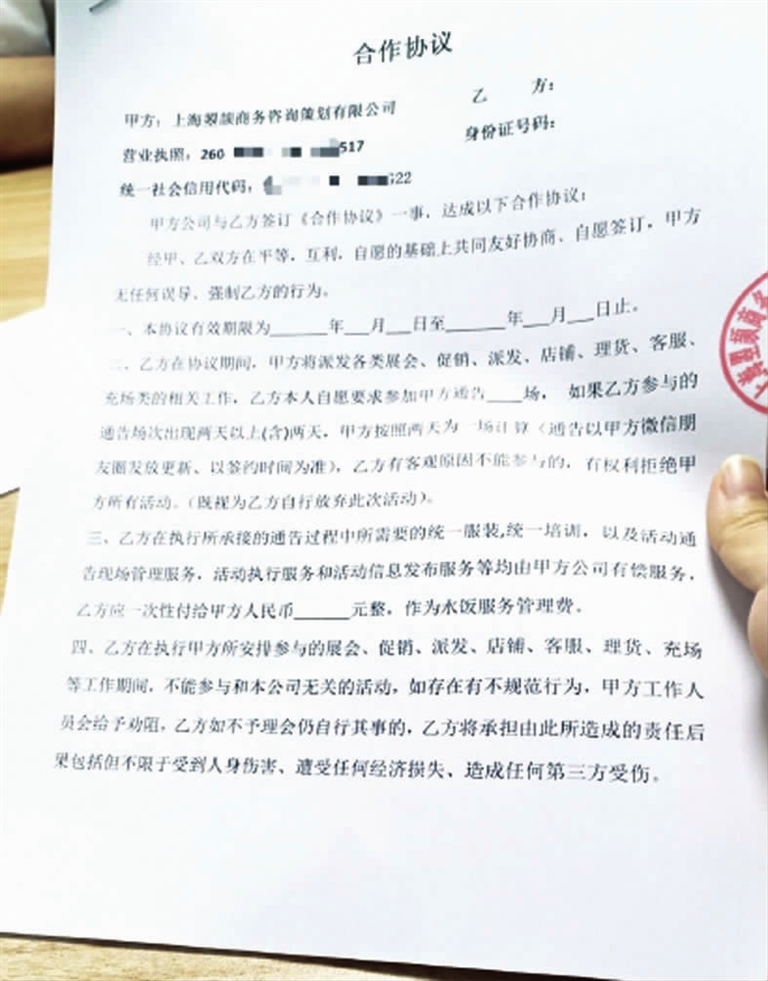 合作协议
甲方：上海曌颢商务咨询策划有限公司
乙　　方：
营业执照：260 517
身份证号码：
统一社会信用代码： 22
甲方公司与乙方签订《合作协议》一事，达成以下合作协议：
经甲、乙双方在平等，互利，自愿的基础上共同友好协商、自愿签订，甲方
无任何误导、强制乙方的行为。
一、本协议有效期限为______年___月___日至______年___月___日止。
二、乙方在协议期间，甲方将派发各类展会、促销、派发、店铺、理货、客服、
充场类的相关工作，乙方本人自愿要求参加甲方通告____场， 如果乙方参与的
通告场次出现两天以上(含)两天，甲方按照两天为一场计算（通告以甲方微信朋
友圈发放更新、以签约时间为准），乙方有客观原因不能参与的，有权利拒绝甲
方所有活动。（既视为乙方自行放弃此次活动）。
三、乙方在执行所承接的通告过程中所需要的统一服装,统一培训，以及活动通
告现场管理服务，活动执行服务和活动信息发布服务等均由甲方公司有偿服务，
乙方应一次性付给甲方人民币______元整，作为水饭服务管理费。
四、乙方在执行甲方所安排参与的展会、促销、派发、店铺、客服、理货、充场
等工作期间，不能参与和本公司无关的活动，如存在有不规范行为，甲方工作人
员会给予劝阻，乙方如不予理会仍自行其事的，乙方将承担由此所造成的责任后
果包括但不限于受到人身伤害、遭受任何经济损失、造成任何第三方受伤。